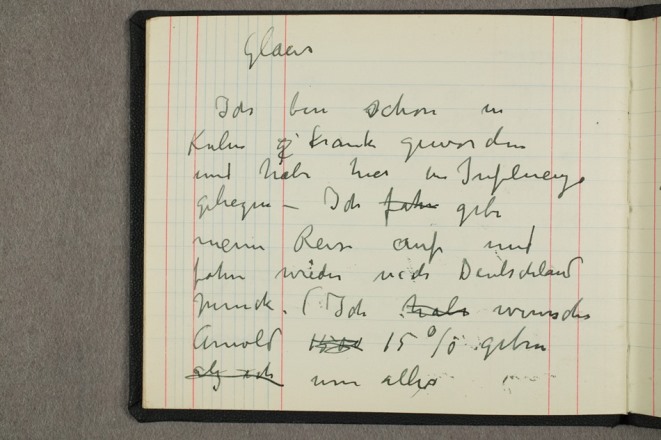 Glaus
Ich bin schon in
krank geworden
und habe hier in Influenza
gelegen – Ich fahre gebe
meine Reise auf und
fahre wieder nach Deutschland
zurück. (Ich habe wünsche
Arnold 15 % geben
als ich um alles